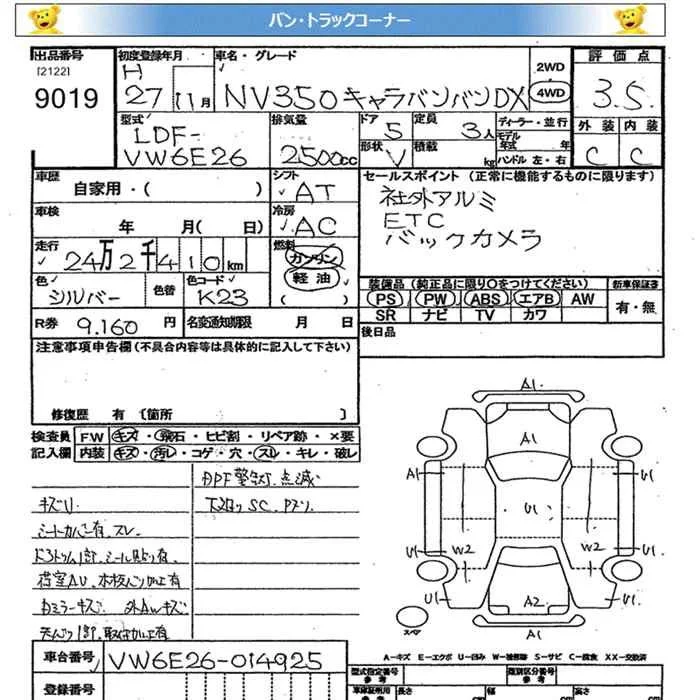 バン・トラックコーナー
出品番号
[2122]
9019
初度登録年月
H
27 11月
車名・グレード
NV350キャラバンバンDX
2WD
4WD
評価点
3.5
外装 内装
C C
型式
LDF-
VW6E26
排気量
2500cc
ドア
5
定員
3人
形状
V
積載
kg
ディーラー・並行
モデル
年式 年
ハンドル 左・右
車歴
自家用・( )
シフト
AT
セールスポイント (正常に機能するものに限ります)
社外アルミ
ETC
バックカメラ
車検
年 月( 日)
冷房
AC
走行
24万2千410km
燃料
ガソリン
軽油
( )
色
シルバー
色替
色コード
K23
装備品 (純正品に限り○をつけてください)
PS PW ABS エアB AW
SR ナビ TV カワ
新車保証書
有・無
R券 9.160 円
名変通知期限 月 日
後日品
注意事項申告欄(不具合内容等は具体的に記入して下さい)
修復歴 有 〔箇所 〕
検査員
記入欄
FW キズ・飛石・ヒビ割・リペア跡・×要
内装 キズ・汚レ・コゲ・穴・スレ・キレ・破レ
キズU.
シートカバー有.スレ.
DPF警告灯点滅
車台番号
VW6E26-014925
登録番号
A1
A1
A1 U1
U1
W2 W2
U1 U1
U1 A2 U1
A1
スペア
A−キズ E−エクボ U−凹み W−補修跡 S−サビ C−腐食 XX−交換済
型式指定番号
参考
類別区分番号
参考
長さ
幅
高さ
cm